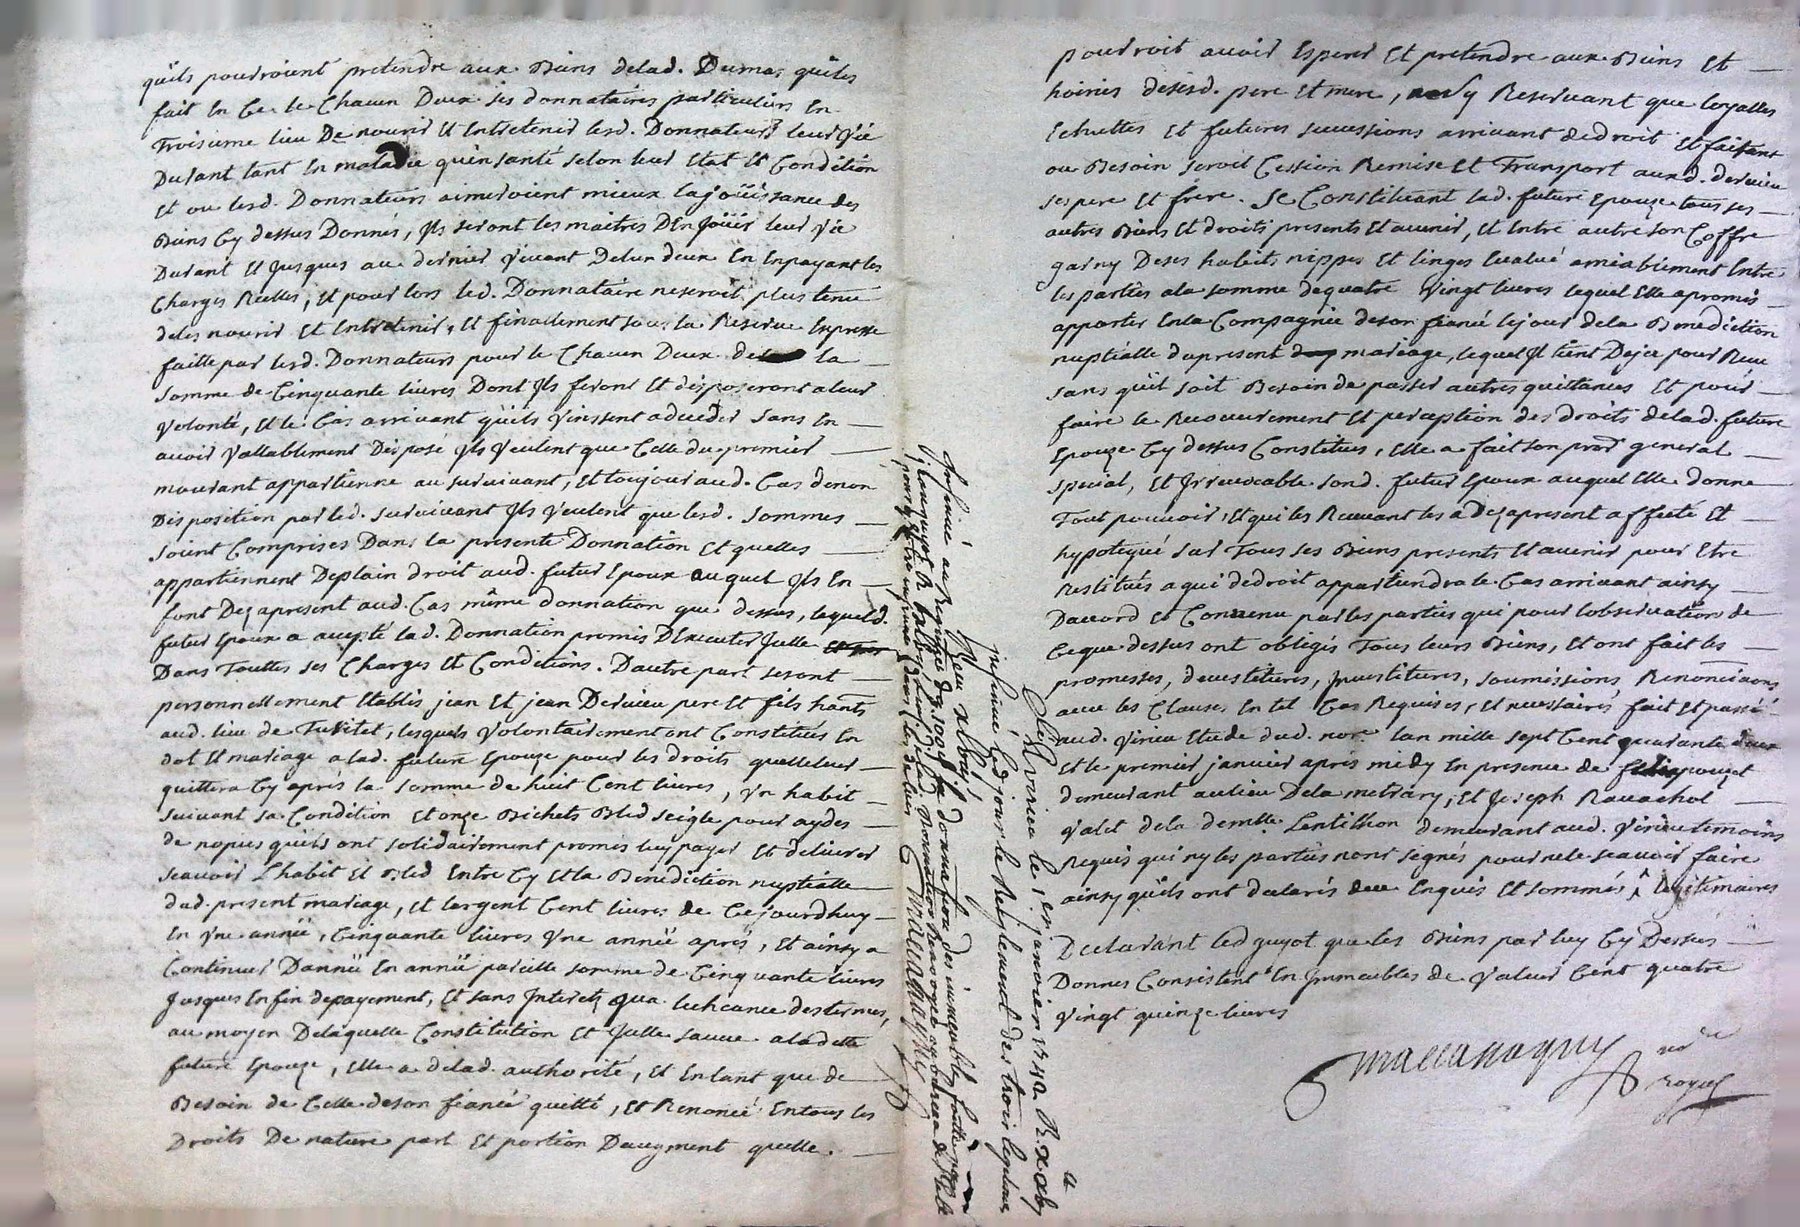 quils pourroient pretendre aux Biens delad. Dumas quils
fait En Ce le Chacun Deux ses donnataires particuliers En
Troisieme lieu De nourir Et Entretenir lesd. Donnateurs leur vie
Durant tant En maladie qu'en santé selon leur Etat Et Condition
Et ou lesd. Donnateurs aimeroient mieux la joüissance des
Biens Cy dessus Donnés, Ils seront les maitres D'En Joüir leur vie
Durant Et Jusques au dernier vivant Delun deux En Enpayant les
Charges Reelles, Et pour lors led. Donnataire neseroit plus tenu
deles nourir Et Entretenir, Et finallement sous la Reserve Expresse
faitte par lesd. Donnateurs pour le Chacun Deux de la
somme de Cinquante livres Dont Ils feront Et disposeront aleur
volonté, Et le Cas arrivant quils vinssent adeceder sans En
avoir vallablement Disposé Ils veulent que Celle du premier
mourant appartienne au survivant, Et toujour aud. Cas denon
Disposition par led. survivant Ils veulent que lesd. sommes
soient Comprises Dans la presente Donnation Et quelles
appartiennent Deplain droit aud. futur Epoux auquel Ils En
font Dez apresent aud. Cas même donnation que dessus, lequel d.
futur Epoux a accepté lad. Donnation promis D'Executer Jcelle
Dans Touttes ses Charges Et Conditions. Dautre part seront
personnellement Etablis jean Et jean Dervieu pere Et fils hants
aud. lieu de Tuvitet, lesquels volontairement ont Constitués En
dot Et mariage a lad. future Epouze pour les droits quelleleur
quittera Cy aprés la somme de huit Cent livres, vn habit
suivant sa Condition Et onze Bichets Bled seigle pour aydes
de nopces quils ont solidairement promis luy payer Et delivrer
scavoir L'habit Et Bled Entre Cy Et la Benediction nuptialle
dud. present mariage, Et largent Cent livres de Cejourdhuy
En vne année, Cinquante livres vne année aprés, Et ainsy a
Continuer D'année En année pareille somme de Cinquante livres
Jusques Enfin depayement, Et sans Interets qua lecheance destermes,
au moyen Delaquelle Constitution Et Jcelle sauve aladitte
future Epouze, Elle a delad. authorité, Et Entant que de
Besoin de Celle deson fiancé quitté, Et Renoncé Entous les
Droits De nature part Et portion Daugment quelle
Insinué au Registre du 100e d. la donnation des immeubles faitte
par led. Guyot
Reçu
insinué led jour le Reglement des trois
St Virieu le 1er janvier 1742 R.
maccanaguy
pourroit avoir Esperer Et pretendre aux Biens Et
hoiries desesd. pere Et mere, ny Reservant que loyalles
Echuttes Et futures successions arrivant dedroit Et faisant
ou Besoin seroit Cession Remise Et Transport auxd. dervieu
ses pere Et frere. Se Constituant lad. future Epouze tous ses
autres Biens Et droits presents Et avenir, Et Entre autre son Coffre
garny Deses habits, nippes Et linges Evalué amiablement Entre
les parties ala somme dequatre vingt livres lequel Elle apromis
apporter En la Compagnie deson fiancé lejour dela Benediction
nuptialle dupresent mariage, lequel Il tient Deja pour Recu
sans qu'il soit Besoin de passer autres quittances Et pour
faire le Recouvrement Et perception des droits delad. future
Epouze Cy dessus Constitués, Elle a fait son procr general
special, Et Irrevocable sond. futur Epoux auquel Elle donne
Tout pouvoir, Et qui les Recevant les a Dez apresent affecté Et
hypotequé sur Tous ses Biens presents Et avenir pour Etre
Restitués a qui dedroit appartiendra le Cas arrivant ainsy
Daccord Et Convenu par les parties qui pour l'observation de
Ceque dessus ont obligés Tous leurs Biens, Et ont fait les
promesses, devestitures, Investitures, soumissions Renonciaons
avec les Clauses En tel Cas Requises, Et necessaires fait Et passé
aud. virieu Etude dud. nore lan mille sept Cent quarante deux
Et le premier janvier aprés midy En presence de felix pouzet
demeurant aulieu Dela metrary, Et Joseph Ravachol
valet dela demlle Lentillon demeurant aud. virieu temoins
Requis qui ny les parties nont signés pour nele scavoir faire
ainsy quils ont declarés deue Enquis Et sommés legitimaires
Declarant led guyot que les Biens par luy Cy Dessus
Donnes Consistent En Immeubles de valeur Cent quatre
vingt quinze livres
maccanaguy nore
royal